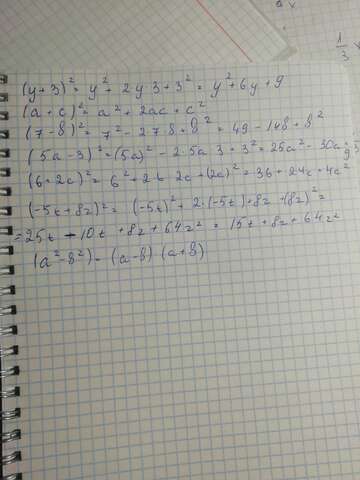 (y+3)² = y² + 2y·3+3² = y²+6y+9
(a+c)² = a² + 2ac + c²
(7-8)² = 7² - 2·7·8+8² = 49 - 148 + 8²
(5a-3)² = (5a)² - 2·5a·3+3² = 25a² - 30a+9
(6+2c)² = 6² + 2·6·2c+(2c)² = 36+24c+4c²
(-5t+8z)² = (-5t)² + 2·(-5t)+8z+(8z)² =
= 25t - 10t + 8z + 64z² = 15t+8z+64z²
(a²-8²) = (a-8)·(a+8)
1/3